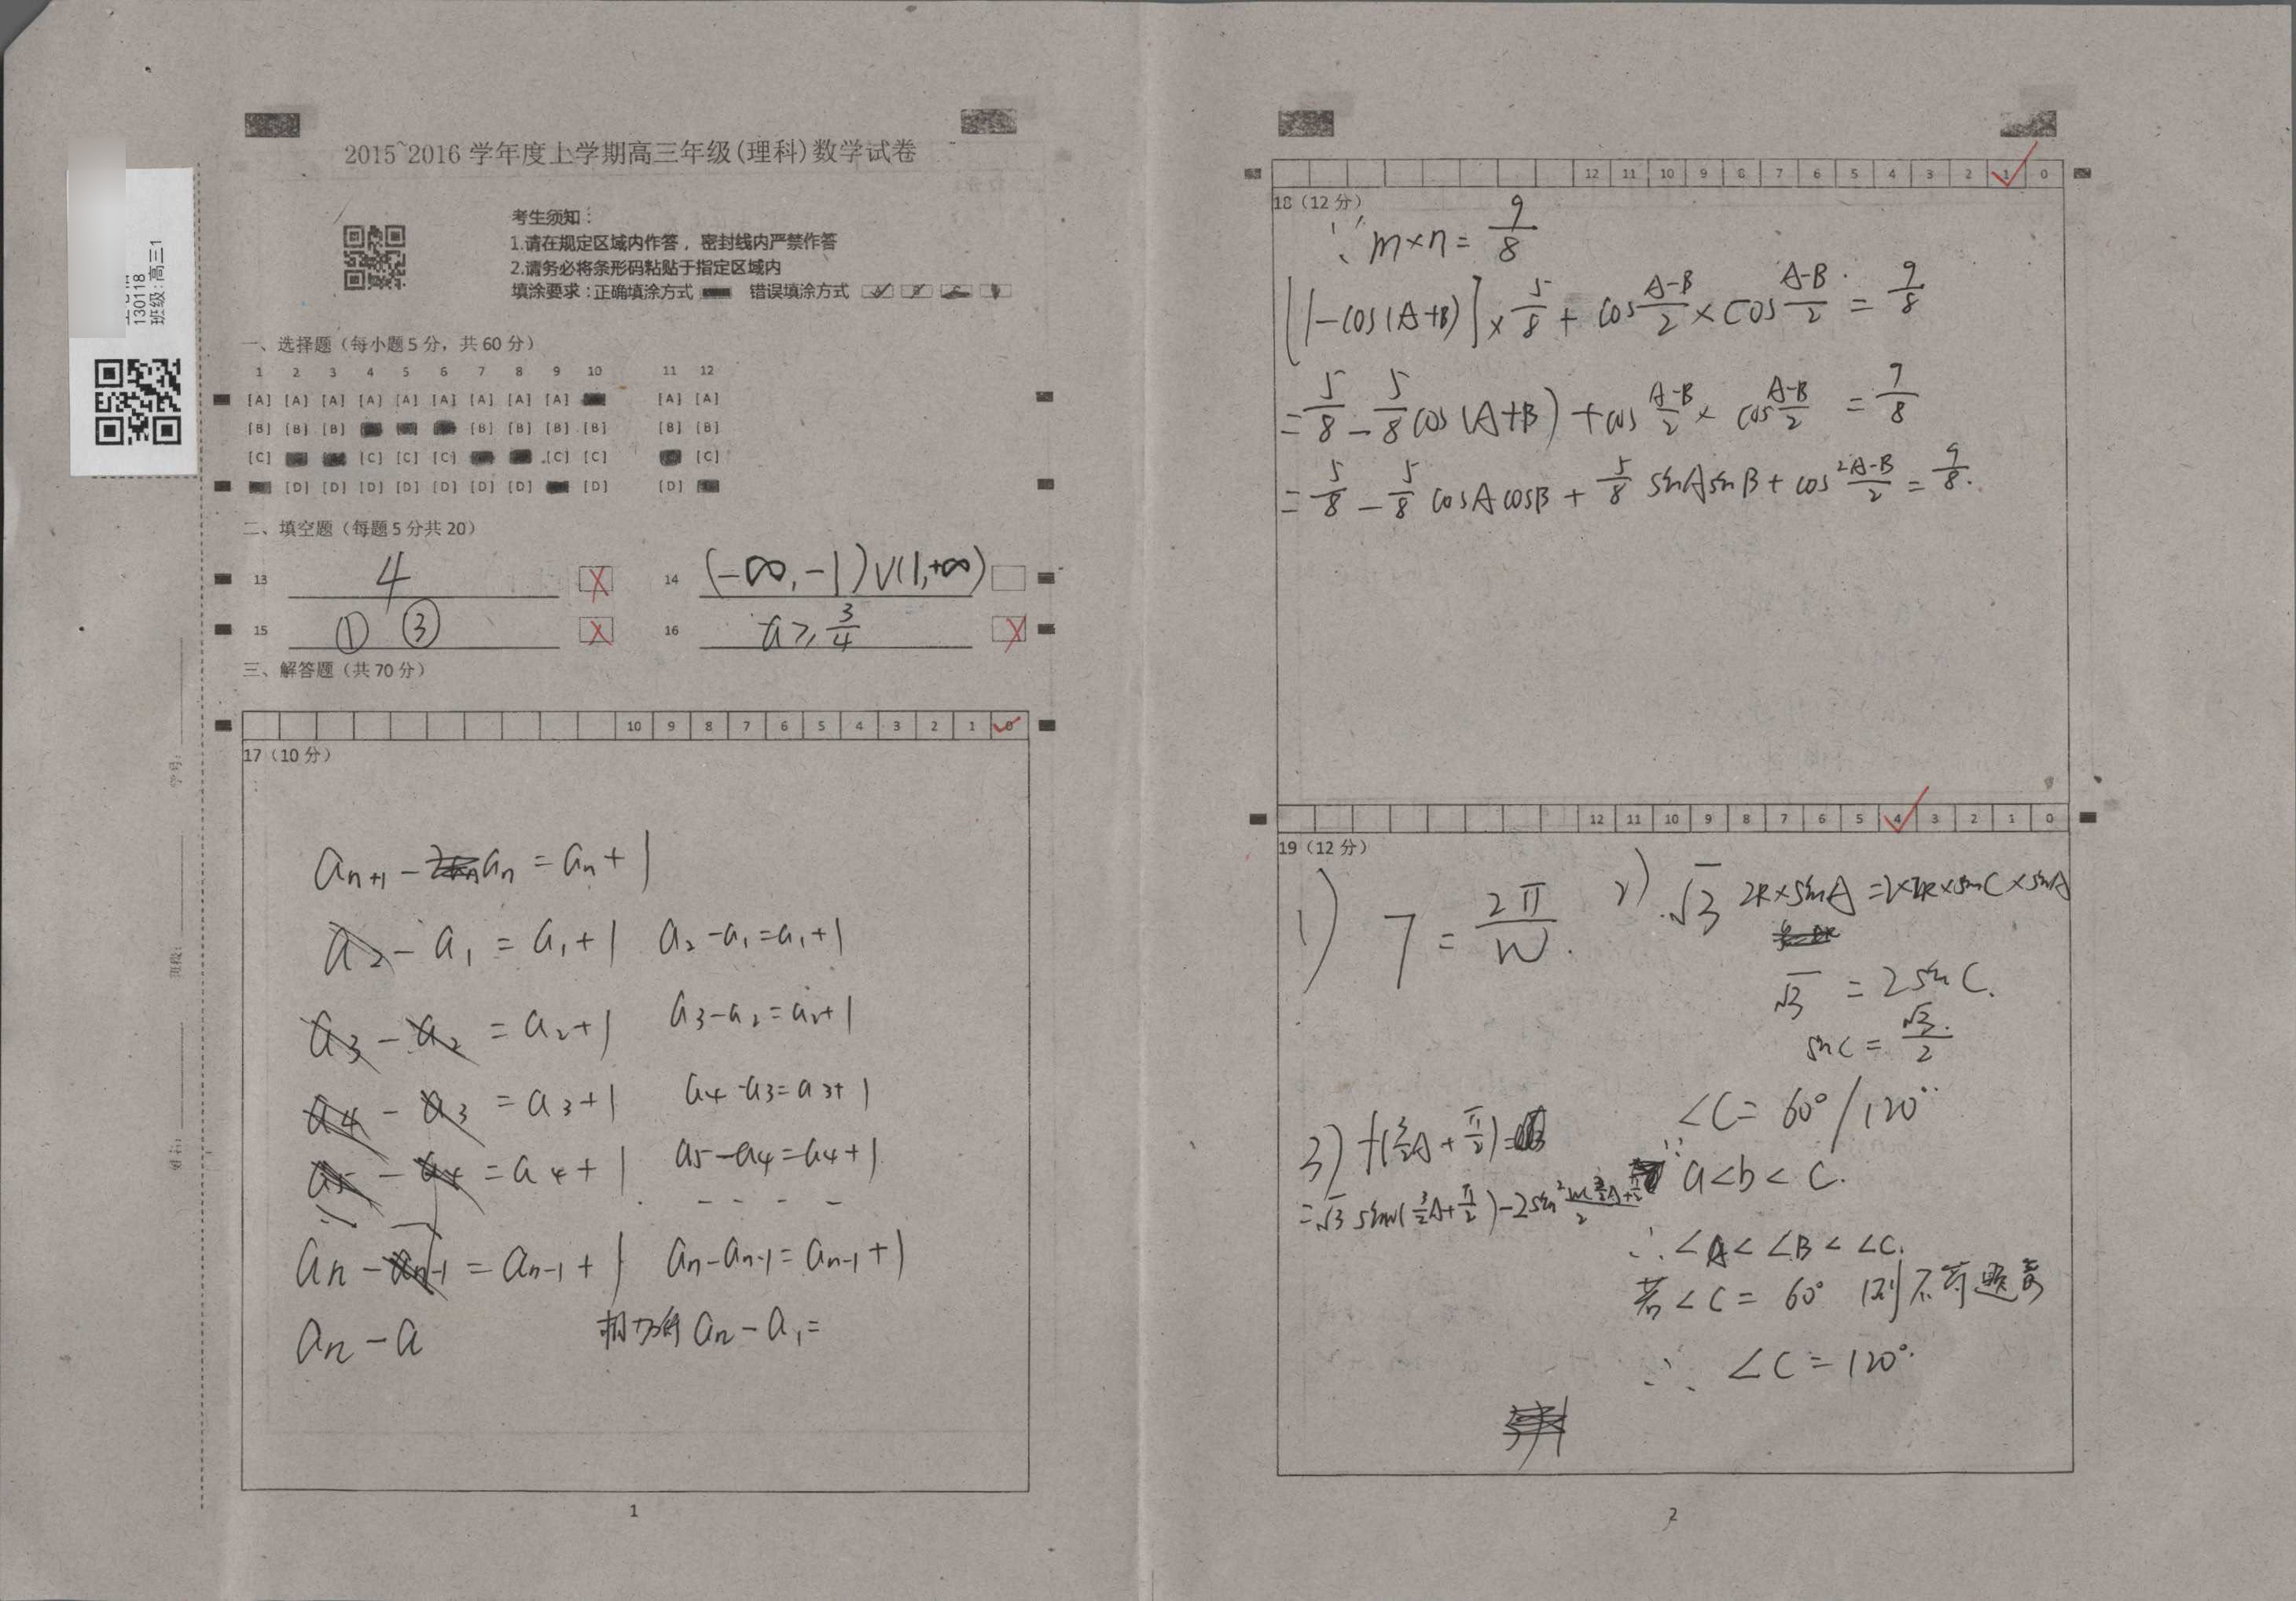 2015~2016 学年度上学期高三年级(理科)数学试卷
130118
班级:高三1
考生须知：
1.请在规定区域内作答，密封线内严禁作答
2.请务必将条形码粘贴于指定区域内
填涂要求：正确填涂方式 错误填涂方式
一、选择题（每小题5分，共60分）
1 2 3 4 5 6 7 8 9 10 11 12
[A] [A] [A] [A] [A] [A] [A] [A] [A] [A] [A]
[B] [B] [B] [B] [B] [B] [B] [B] [B]
[C] [C] [C] [C] [C] [C] [C]
[D] [D] [D] [D] [D] [D] [D] [D] [D]
二、填空题（每题5分共20）
13 4
14 (-∞,-1)∪(1,+∞)
15 ① ③
16 a≥3/4
三、解答题（共70分）
10 9 8 7 6 5 4 3 2 1 0
17（10分）
aₙ₊₁ - aₙ = aₙ + 1
a₂ - a₁ = a₁ + 1 a₂ - a₁ = a₁ + 1
a₃ - a₂ = a₂ + 1 a₃ - a₂ = a₂ + 1
a₄ - a₃ = a₃ + 1 a₄ - a₃ = a₃ + 1
a₅ - a₄ = a₄ + 1 a₅ - a₄ = a₄ + 1
aₙ - aₙ₋₁ = aₙ₋₁ + 1 aₙ - aₙ₋₁ = aₙ₋₁ + 1
aₙ - a 相加得 aₙ - a₁ =
学号:
班级:
1
12 11 10 9 8 7 6 5 4 3 2 1 0
18（12分）
∵ m×n = 9/8
[1-cos(A+B)]×5/8 + cos (A-B)/2 × cos (A-B)/2 = 9/8
= 5/8 - 5/8 cos(A+B) + cos (A-B)/2 × cos (A-B)/2 = 9/8
= 5/8 - 5/8 cosAcosB + 5/8 sinAsinB + cos² (A-B)/2 = 9/8.
12 11 10 9 8 7 6 5 4 3 2 1 0
19（12分）
1) T = 2π/W.
2) √3 2R×sinA = 2×2R×sinC×sinA
√3 = 2sinC.
sinC = √3/2
∠C = 60°/120°
∵ a<b<c.
∴ ∠A<∠B<∠C.
若∠C = 60° 则不符题意
∴ ∠C = 120°.
3) f(3/2A + π/2) =
= √3 sinw(3/2A + π/2) - 2sin²
2